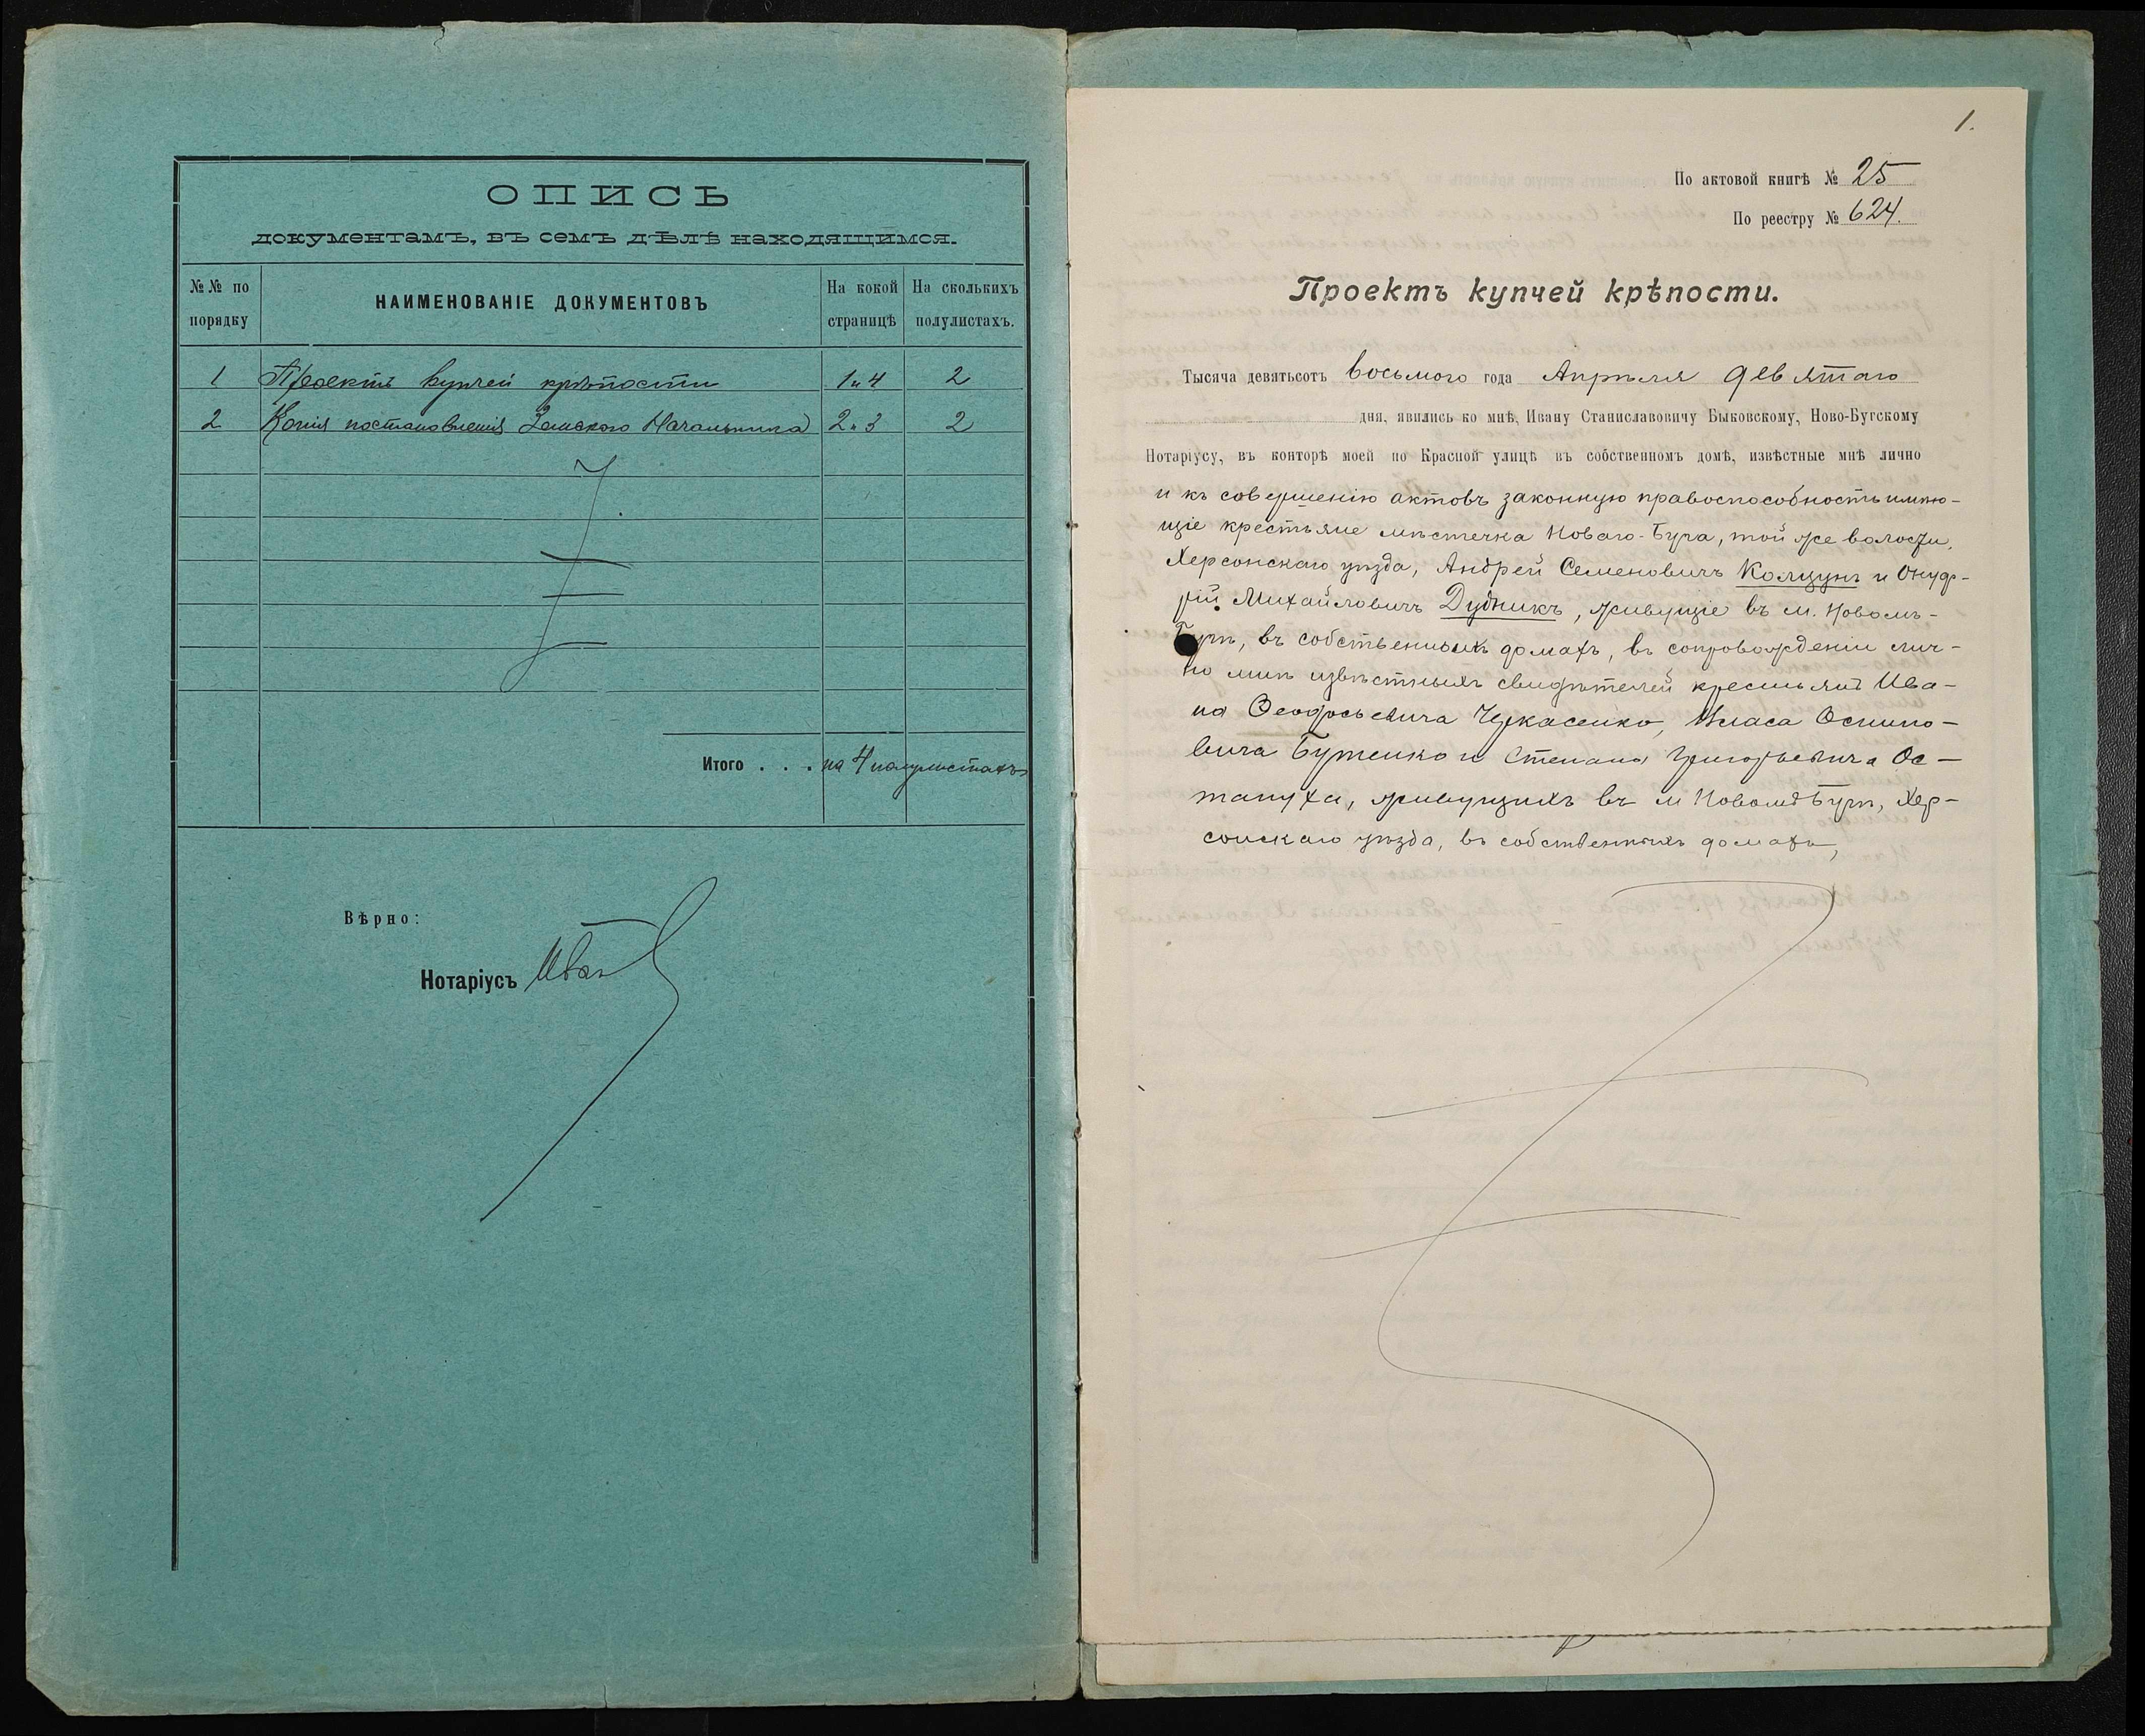 ОПИСЬ
документамъ, въ семъ дѣлѣ находящимся.
№№ по порядку
НАИМЕНОВАНІЕ ДОКУМЕНТОВЪ
На кокой страницѣ
На сколькихъ полулистахъ.
1 Проектъ купчей крѣпости 1 и 4 2
2 Копія постановленія Земскаго Начальника 2 и 3 2
Итого . . . на 4 полулистахъ
Вѣрно:
Нотаріусъ
1.
По актовой книгѣ № 25
По реестру № 624.
Проектъ купчей крѣпости.
Тысяча девятьсотъ восьмого года Апрѣля девятаго
дня, явились ко мнѣ, Ивану Станиславовичу Быковскому, Ново-Бугскому
Нотаріусу, въ конторѣ моей по Красной улицѣ въ собственномъ домѣ, извѣстные мнѣ лично
и къ совершенію актовъ законную правоспособность имѣю-
щіе крестьяне мѣстечка Новаго-Буга, той же волости,
Херсонскаго уѣзда, Андрей Семеновичъ Колцунъ и Онуф-
рій Михайловичъ Дудникъ, живущіе въ м. Новомъ-
Бугѣ, въ собственныхъ домахъ, въ сопровожденіи лич-
но мнѣ извѣстныхъ свидѣтелей крестьянъ Ива-
на Ѳеодосьевича Черкасенко, Власа Осипо-
вича Бутенко и Степана Григорьевича Ос-
тапуха, живущихъ въ м Новомъ Бугѣ, Хер-
сонскаго уѣзда, въ собственныхъ домахъ,